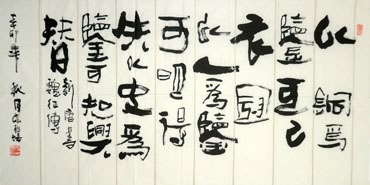 以銅爲
鑒可正
衣冠
以人爲鑒
可明得
失以史爲
鑒可知興
替
新唐書
魏徵傳
辛卯年 秋月